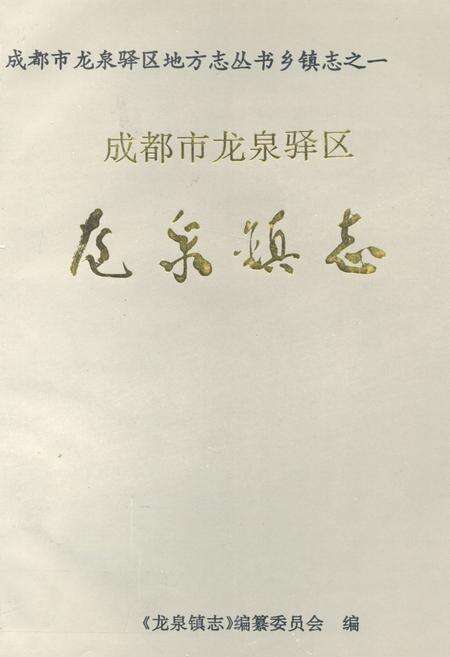 成都市龙泉驿区地方志丛书乡镇志之一
成都市龙泉驿区
龙泉镇志
《龙泉镇志》编纂委员会 编